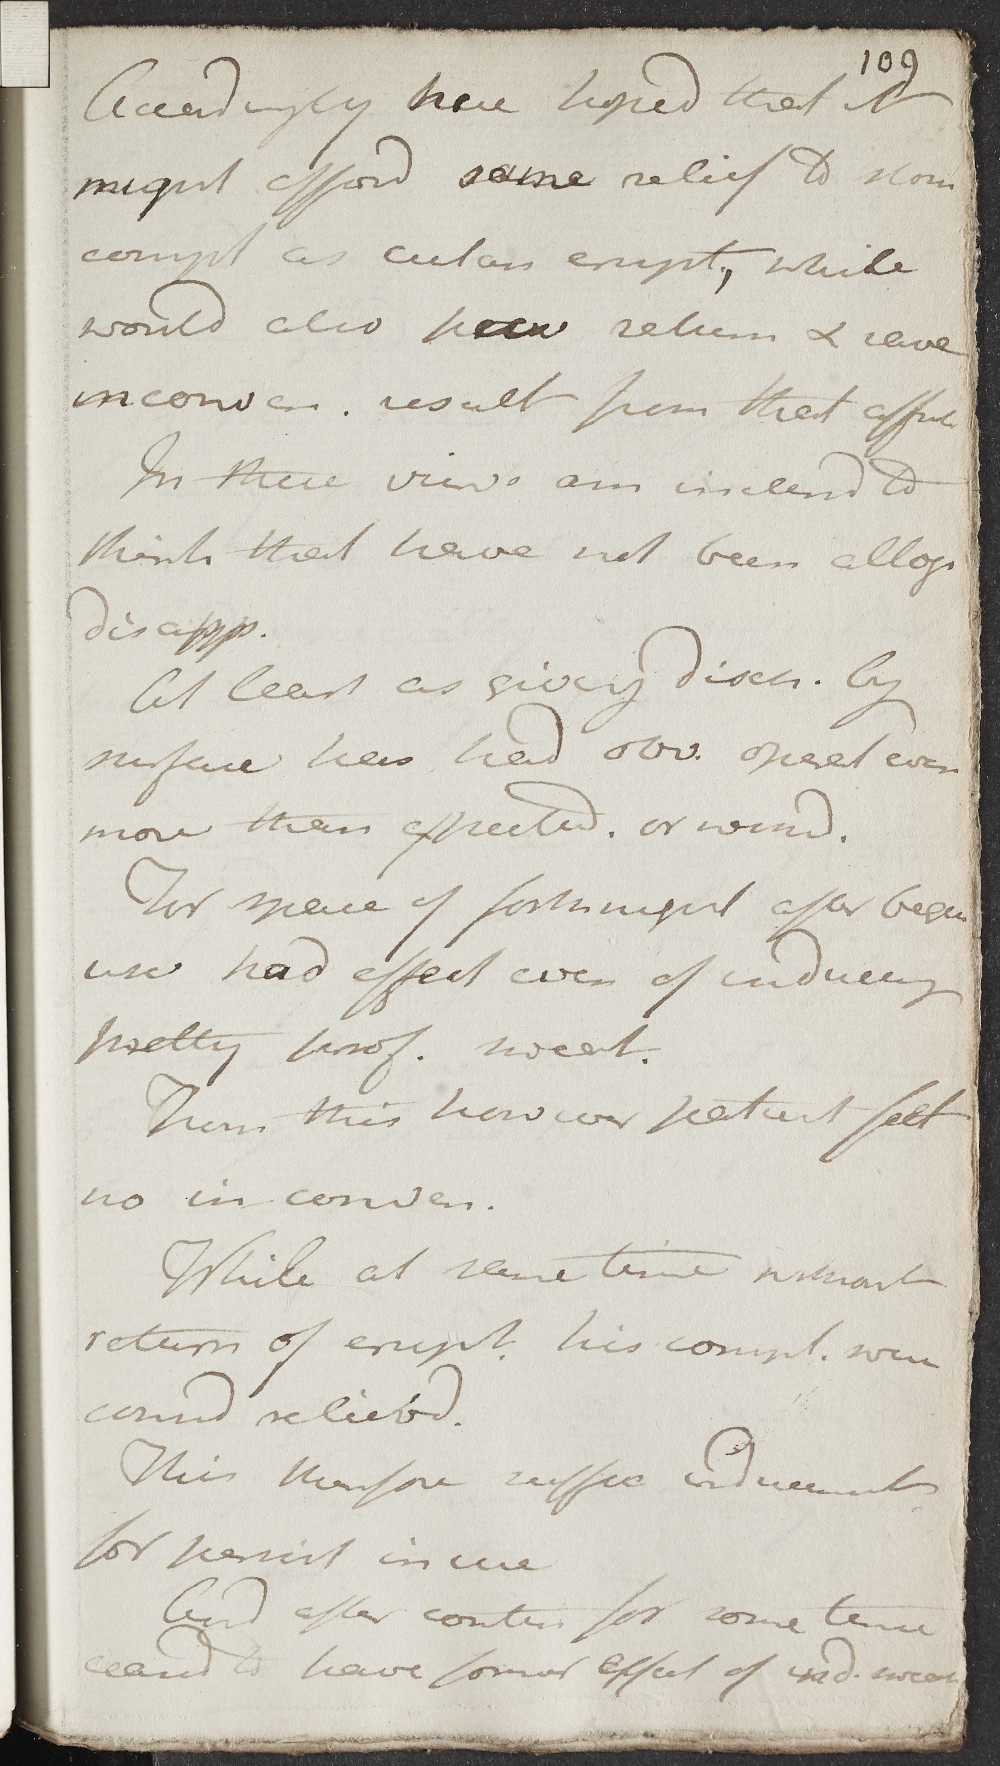 109
Accordingly have hoped that it
might afford some relief to stom
compl as cutan erupt, while
would also prev return & save
inconven. result from that affect
In these views am inclend to
think that have not been altog
disapp.
At least as giving disch. by
surface has had obv. operat even
more than expected. or wound.
For space of fortnight after begin
use had effect even of inducing
pretty prof. sweat.
From this however patient felt
no inconven.
While at same time without
return of erupt. his compl. were
consid reliev'd.
This therefore suffic inducement
for persist in use
And after contin for some time
ceas'd to have former effect of ind. sweat